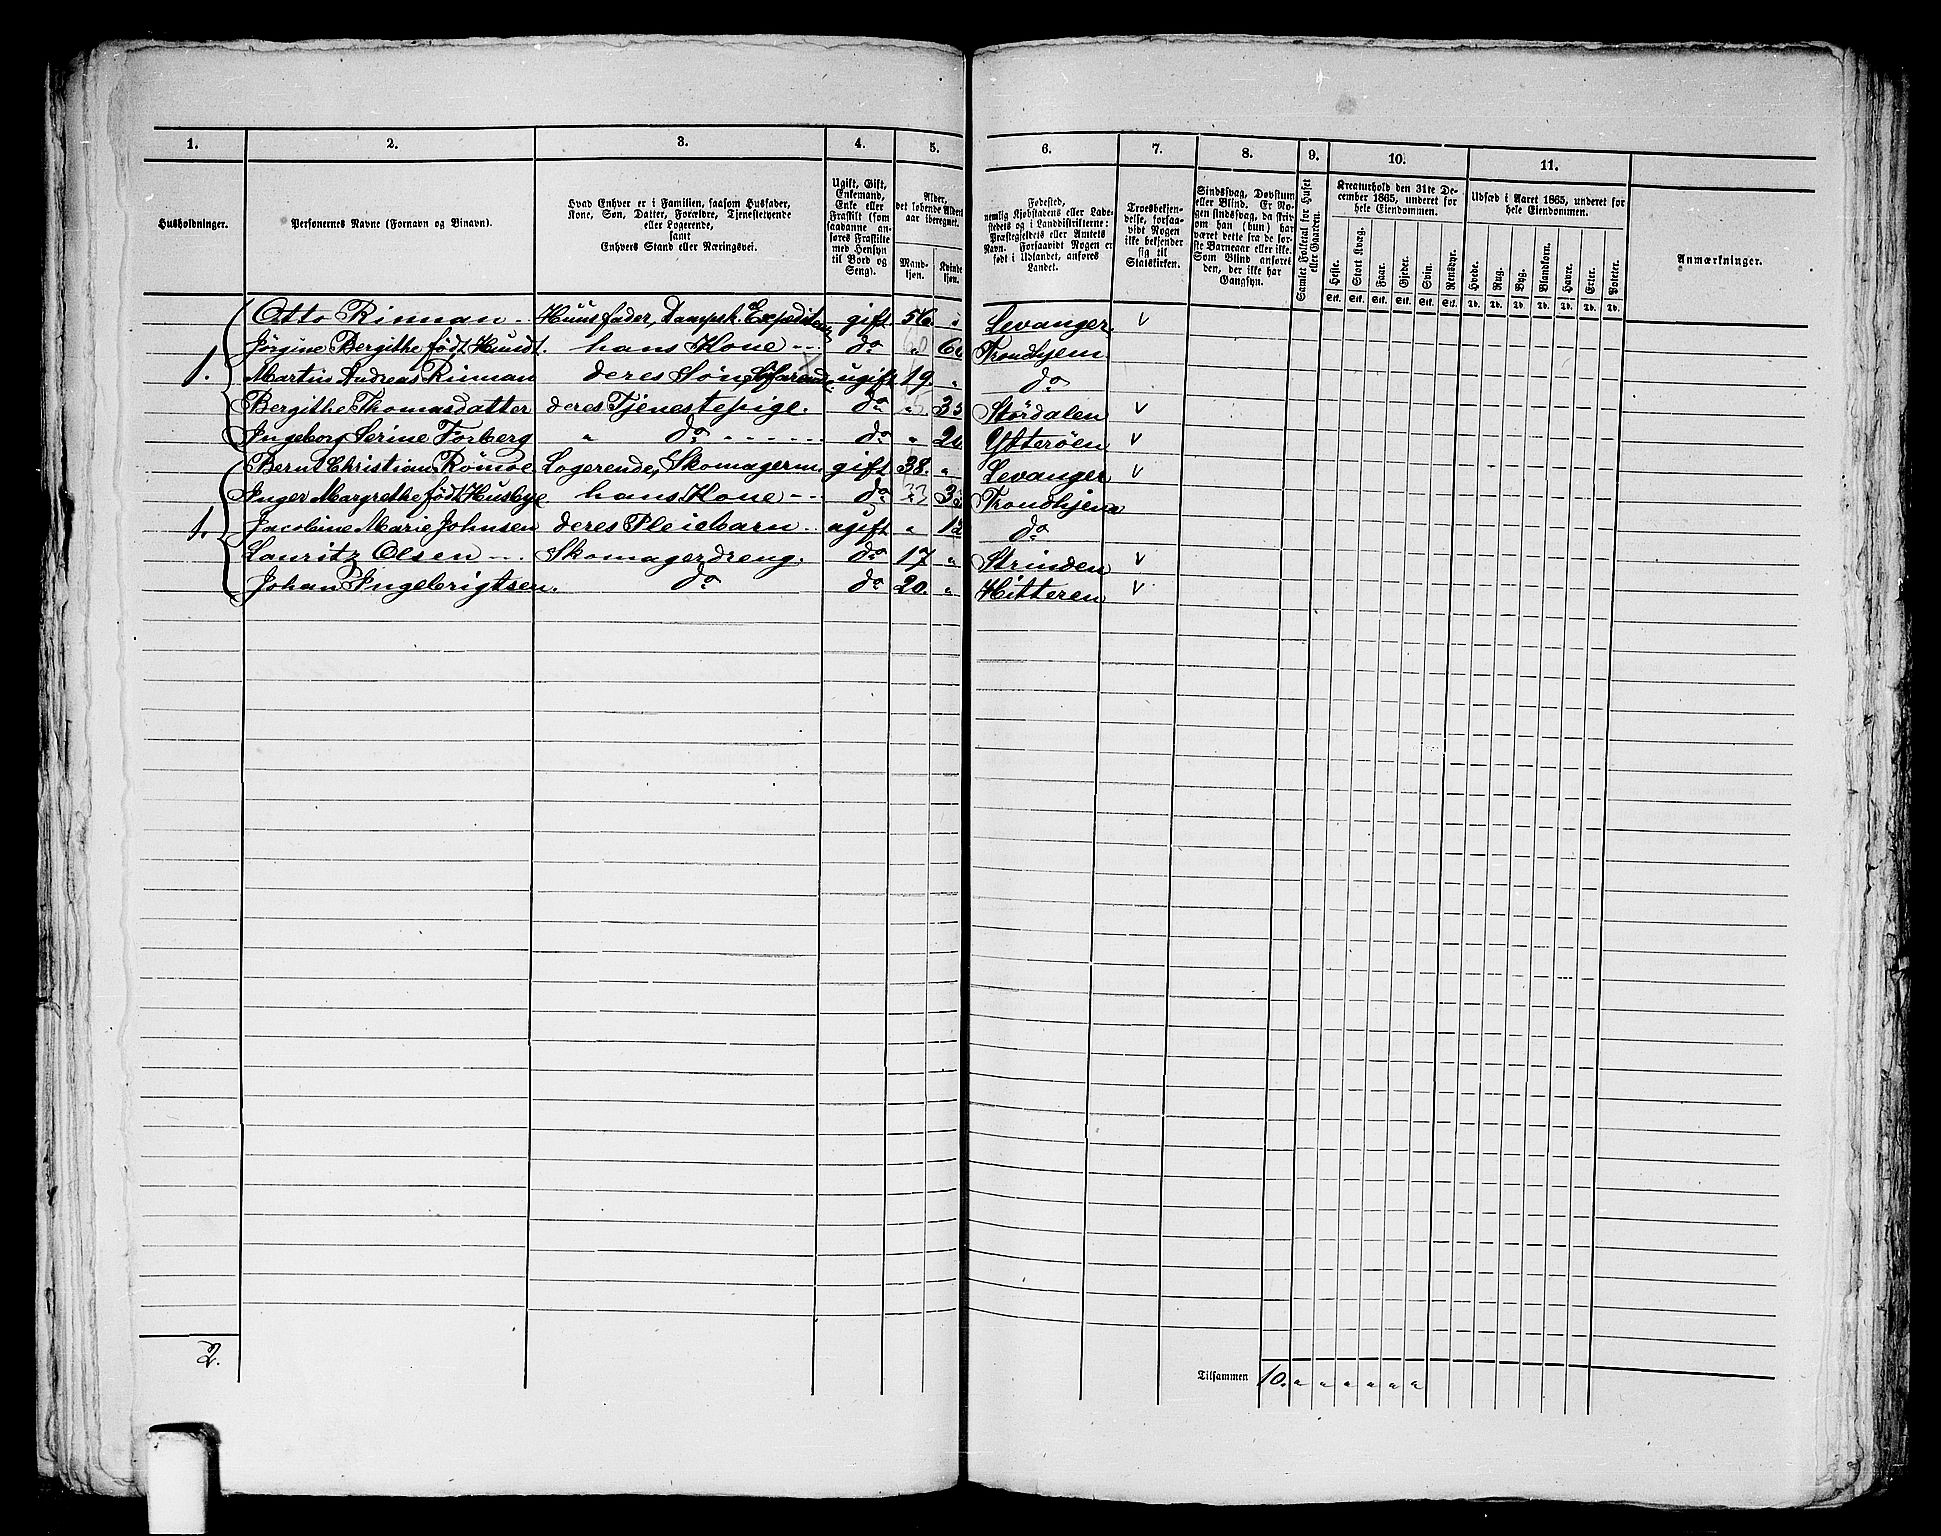 1. 2. 3. 4. 5. 6. 7. 8. 9. 10. 11.
Husholdninger.
Personernes Navne (Fornavn og Binavn).
Hvad Enhver er i Familien, saasom Husfader,
Kone, Søn, Datter, Forældre, Tjenestetyende
eller Logerende,
samt
Enhvers Stand eller Næringsvei.
Ugift, Gift,
Enkemand,
Enke eller
Fraskilt (som
saadanne an-
føres Fraskilte
med Hensyn
til Bord og
Seng).
Alder,
det løbende Alders-
aar iberegnet.
Mand-
kjøn.
Kvinde-
kjøn.
Fødested,
nemlig Kjøbstadens eller Lade-
stedets og i Landdistrikterne:
Præstegjeldets eller Amtets
Navn. Forsaavidt Nogen er
født i Udlandet, anføres
Landet.
Troesbekjen-
delse, forsaa-
vidt Nogen
ikke bekjender
sig til
Statskirken.
Sindssvag, Døvstum
eller Blind. Er No-
gen sindssvag, da skriv
om han (hun) har
været dette fra de før-
ste Barneaar eller ikke.
Som Blind anføres
den, der ikke har
Gangsyn.
Samlet Folketal for Huset
eller Gaarden.
Kreaturhold den 31te De-
cember 1865, underet for
hele Eiendommen.
Heste. Stort Kvæg. Faar. Gjeder. Svin. Rensdyr.
Stk. Stk. Stk. Stk. Stk. Stk.
Udsæd i Aaret 1865, underet for
hele Eiendommen.
Hvede. Rug. Byg. Blandkorn. Havre. Erter. Poteter.
Td. Td. Td. Td. Td. Td. Td.
Anmærkninger.
Otto Rinnan Huusfader, Dampsk. Expediteur gift 56. " Levanger. v
Jørgine Bergithe født Hundt. hans Kone do " Trondhjem
1. Martin Andreas Rinnan deres Søn, Søfarende ugift 19. " do
Bergithe Thomasdatter deres Tjenestepige. do " Stördalen v
Ingeborg Serine Forberg " do do " Ytterøen v
Bernt Christian Rømoe Logerende, Skomagerm. gift 38. " Levanger v
Inger Margrethe født Husbye hans Kone do 33 Trondhjem
1. Jacobine Marie Johnsen deres Pleiebarn ugift " 12 do
Lauritz Olsen Skomagerdreng. do 17 " Strinden v
Johan Ingebrigtsen. do do 20. " Hitteren v
2.
Tilsammen 10. " " " " " "